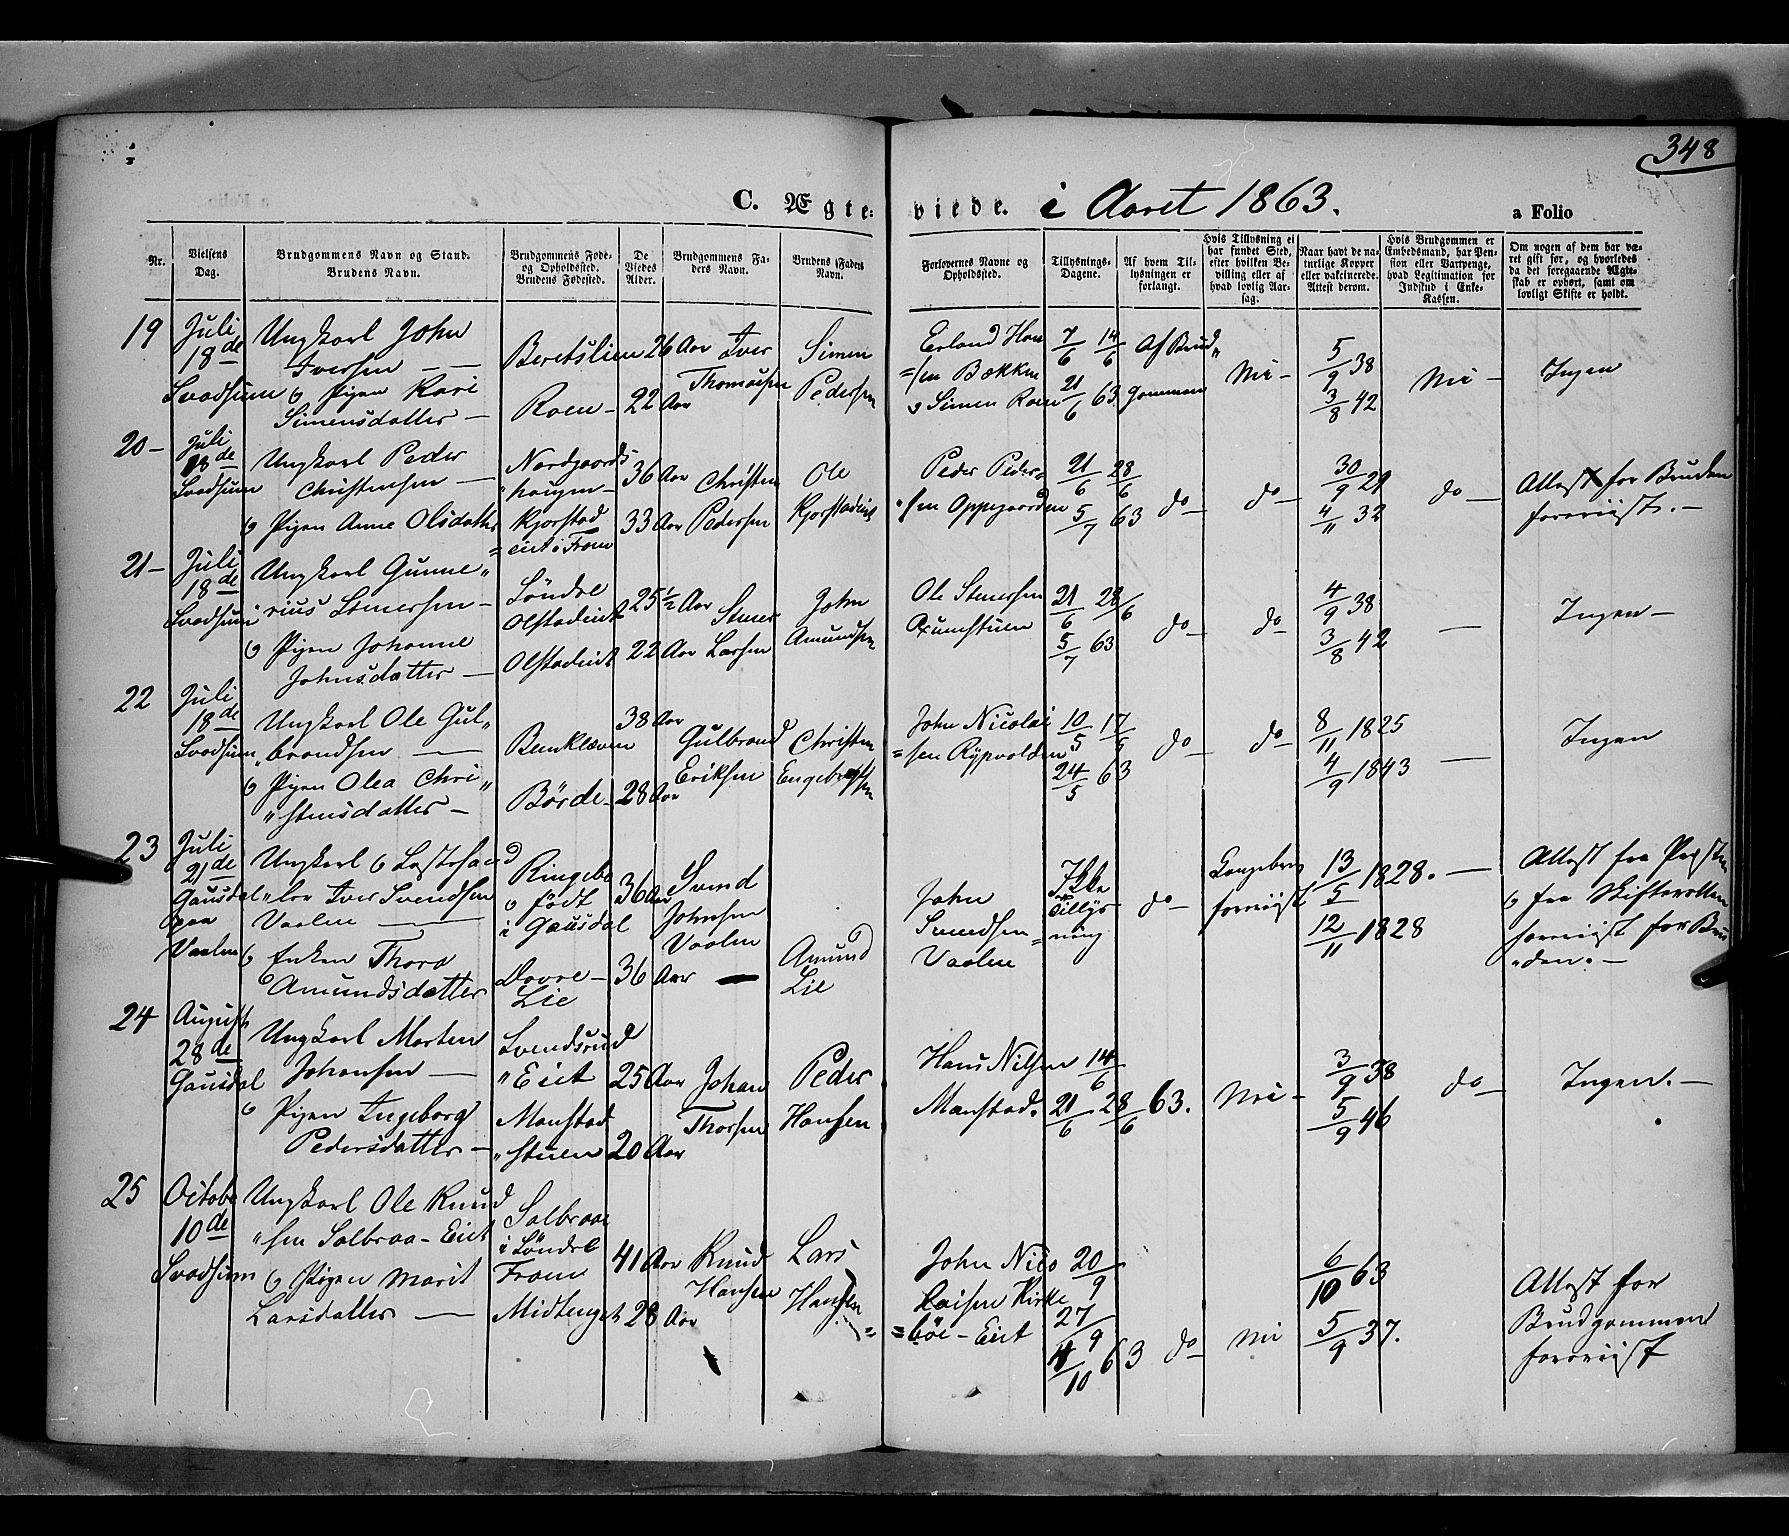 348
C. Ægte- viede. i Aaret 1863.
a Folio
Nr.
Vielsens Dag.
Brudgommens Navn og Stand. Brudens Navn.
Brudgommens Føde- og Opholdssted. Brudens Fødested.
De Viedes Alder.
Brudgommens Faders Navn.
Brudens Faders Navn.
Forlovernes Navne og Opholdssted.
Tillysnings-Dagene.
Af hvem Tillysningen er forlangt.
Hvis Tillysning ei har fundet Sted, efter hvilken Bevilling eller af hvad lovlig Aarsag.
Naar havt de naturlige Kopper eller vakcinerede. Attest derom.
Hvis Brudgommen er Embedsmand, har Pension eller Vartpenge, hvad Legitimation for Indskud i Enke-Kassen.
Om nogen af dem har været gift før, og hvorledes da det foregaaende Ægteskab er ophørt, samt om lovligt Skifte er holdt.
19 Juli 18de Svadsum
Ungkarl John
Iversen —
o Pigen Kari
Simensdatter —
Beretslien
Roen —
26 Aar
22 Aar
Iver
Thomassen
Simen
Pedersen
Erland Han
=sen Bækken
o Simen Roen
7/6 14/6
21/6 63
Af Brud„
gommen
Nei —
5/9 38
3/8 42
Nei —
Ingen
20 — Juli 18de Svadsum
Ungkarl Peder
Christensen —
o Pigen Anne Olsdatter
Nordgaards
„haugen —
Kjorstad
=eiet i Fron
36 Aar
33 Aar
Christen
Pedersen
Ole
Kjorstadeiet
Peder Peder
sen Oppegaarden
21/6 28/6
5/7 63
do —
do —
30/9 29
4/11 32
do —
Attest for Bruden
foreviist. —
21 — Juli 18de Svadsum
Ungkarl Gunne„
rius Stenersen —
o Pigen Johanne
Johnsdatter —
Söndre
Olstadeiet
Olstadeiet
25 1/2 Aar
22 Aar
Stener
Larsen
John
Amundsen
Ole Stenersen
Axumstuen
21/6 28/6
5/7 63
do —
do —
4/9 38
3/8 42
—
Ingen —
22 Juli 18de Svadsum
Ungkarl Ole Gul„
„brandsen —
o Pigen Olea Chri„
„stensdatter —
Benkleven
Börde —
38 Aar
28 Aar
Gulbrand
Eriksen
Christen
Engebretsen
John Nicolai
=sen Rypvolden
10/5 17/5
24/5 63
do —
do —
8/11 1825
4/9 1843
—
Ingen
23 Juli 21de Gausdal paa Vaalen
Ungkarl o Lostehand
„ler Iver Svendsen
Vaalen —
o Enken Thora
Amundsdatter
Ringebo
o født
i Gausdal
Dovre —
Lie
36 Aar
36 Aar
Svend
Johnsen
Vaalen
—
Amund
Lie
John
Svendsen =
Vaalen
Ikke
Tillys
ning
do —
Kongebrev
foreviist
13/5 1828. —
12/11 1828
Attest fra Præsten
o fra Skifteretten
foreviist for Bru
„den. —
24 August 28de Gausdal
Ungkarl Morten
Johansen —
o Pigen Ingeborg
Pedersdatter —
Svendsrud
„Eiet
Manstad
„stuen
25 Aar
20 Aar
Johan
Thorsen
Peder
Hansen
Hans Nilsen
Manstad.
14/6
21/6 28/6 63.
Nei —
3/9 38
5/9 46
do —
Ingen. —
25 Octobr 10de Svadsum
Ungkarl Ole Knud
„sen Solbraa - Eiet
o Pigen Marit
Larsdatter —
Solbraa
i Söndre
Fron
Midtenget
41 Aar
28 Aar
Knud
Hansen
Lars
Hansen
John Nico
laisen Kirke
=böe - Eiet
20/9
27/9
4/10 63
do —
Nei
6/10 63
5/9 37.
Attest for
Brudgommen
foreviist